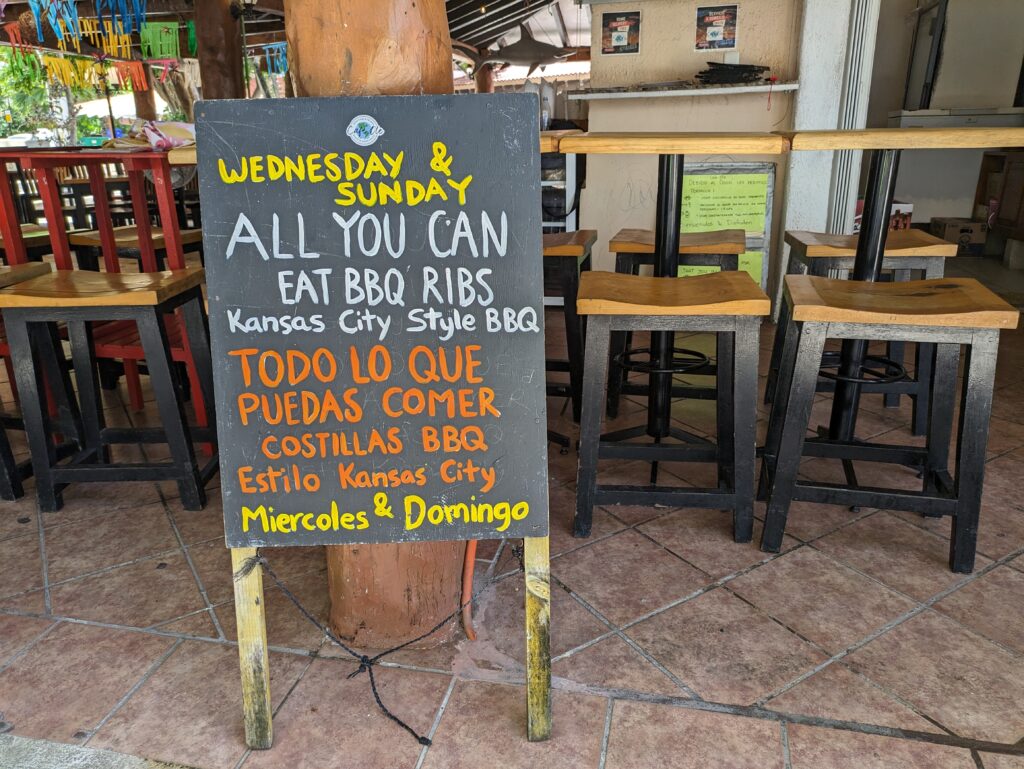 WEDNESDAY &
SUNDAY
ALL YOU CAN
EAT BBQ RIBS
Kansas City Style BBQ
TODO LO QUE
PUEDAS COMER
COSTILLAS BBQ
Estilo Kansas City
Miercoles & Domingo